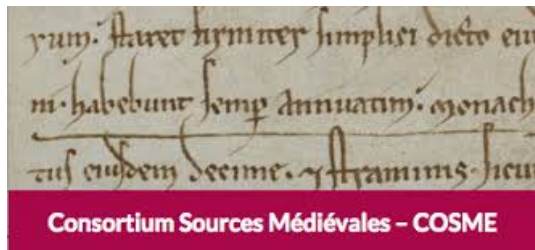 rum. staret firmiter simplici dicto eiu
ni. habebunt semp annuatim. monach
tus eiusdem decime. & straminis. sicu
Consortium Sources Médiévales – COSME